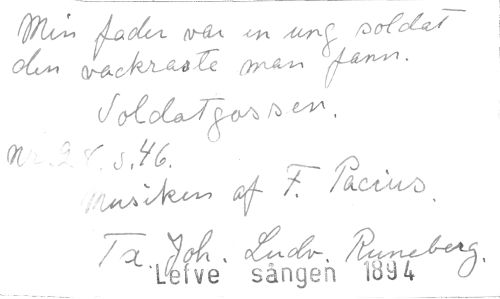 Min fader var en ung soldat
den vackraste man fann.
Soldatgossen.
Nr. 28. s. 46.
Musiken af F. Pacius.
Tx. Joh. Ludv. Runeberg.
Lefve sången 1894